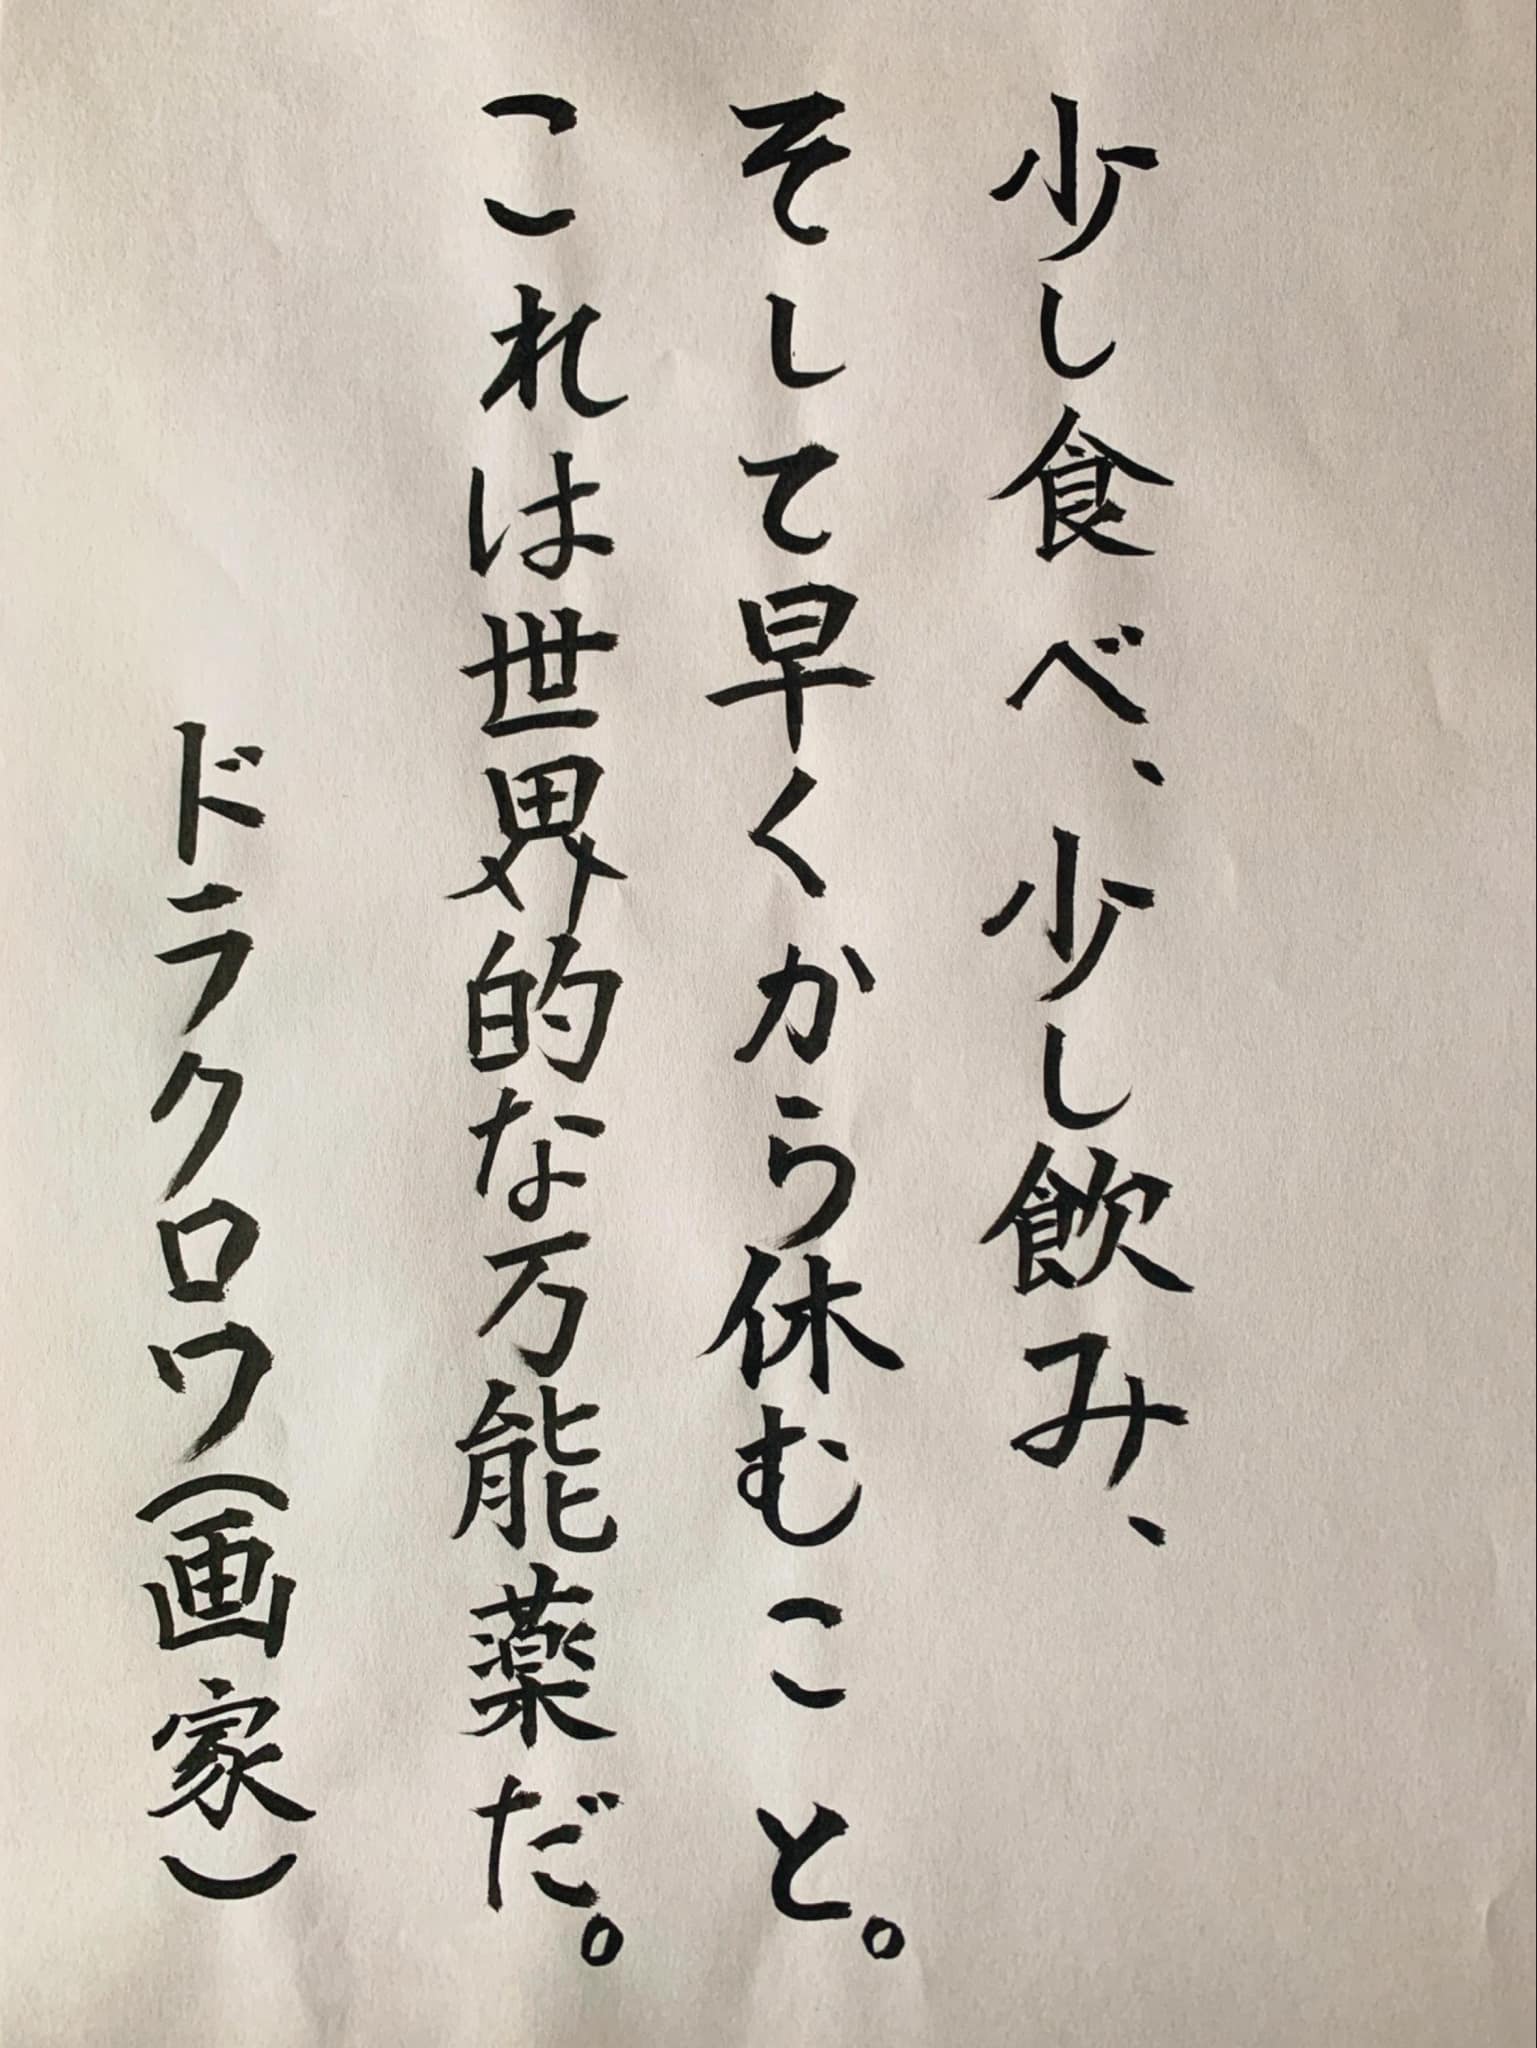 少し食べ、少し飲み、
そして早くから休むこと。
これは世界的な万能薬だ。
ドラクロワ(画家)